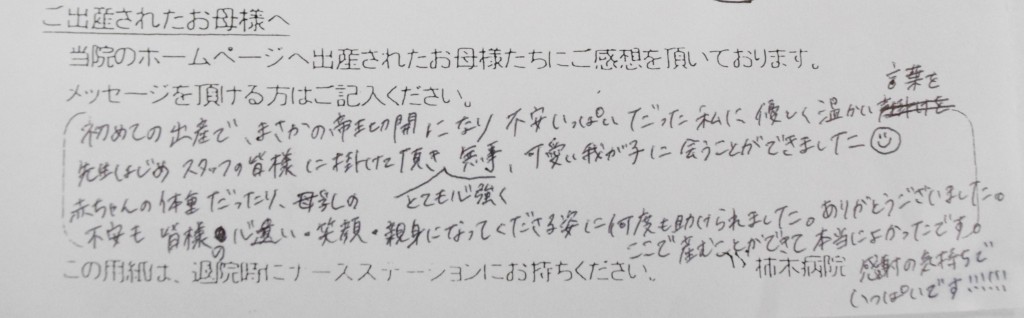 ご出産されたお母様へ
当院のホームページへ出産されたお母様たちにご感想を頂いております。
メッセージを頂ける方はご記入ください。
言葉を
初めての出産で、まさかの帝王切開になり 不安いっぱいだった私に優しく温かい
先生はじめスタッフの皆様に掛けて頂き、無事、可愛い我が子に会うことができました
とても心強く
赤ちゃんの体重だったり、母乳の
不安も 皆様の心遣い・笑顔・親身になってくださる姿に何度も助けられました。ありがとうございました。
ここで産むことができて本当によかったです。
この用紙は、退院時にナースステーションにお持ちください。 柿木病院
感謝の気持ちで
いっぱいです!!!!!!